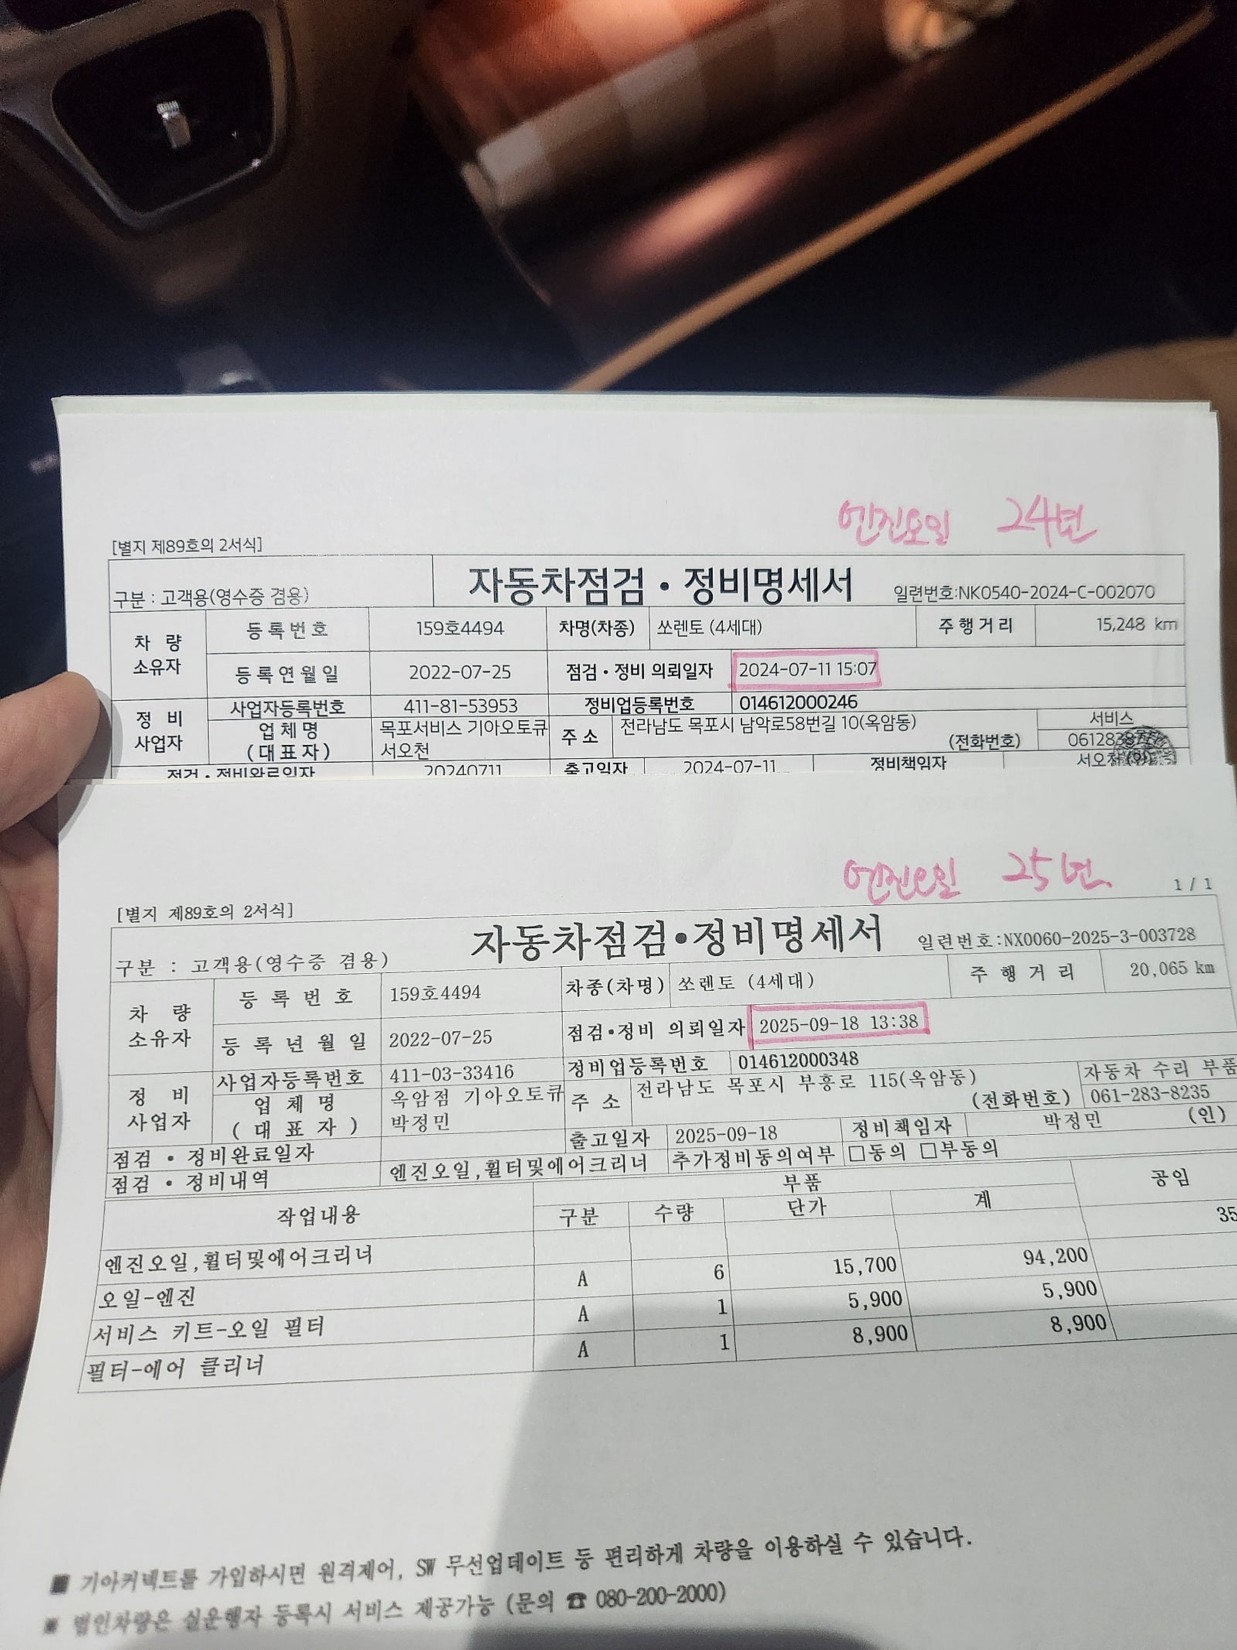 엔진오일 24년
[별지 제89호의 2서식]
구분 : 고객용(영수증 겸용) 자동차점검 • 정비명세서 일련번호:NK0540-2024-C-002070
차 량 소유자 등록번호 159호4494 차명(차종) 쏘렌토 (4세대) 주행거리 15,248 km
등록연월일 2022-07-25 점검 • 정비 의뢰일자 2024-07-11 15:07
정 비 사업자 사업자등록번호 411-81-53953 정비업등록번호 014612000246
업 체 명 (대표자) 목포서비스 기아오토큐 서오천 주 소 전라남도 목포시 남악로58번길 10(옥암동) (전화번호) 서비스
점검 • 정비완료일자 20240711 출고일자 2024-07-11 정비책임자
엔진오일 25년
1 / 1
[별지 제89호의 2서식]
구분 : 고객용(영수증 겸용) 자동차점검•정비명세서 일련번호:NX0060-2025-3-003728
차 량 소유자 등 록 번 호 159호4494 차종(차명) 쏘렌토 (4세대) 주 행 거 리 20,065 km
등 록 년 월 일 2022-07-25 점검•정비 의뢰일자 2025-09-18 13:38
정 비 사업자 사업자등록번호 411-03-33416 정비업등록번호 014612000348
업 체 명 ( 대 표 자 ) 옥암점 기아오토큐 박정민 주 소 전라남도 목포시 부흥로 115(옥암동) (전화번호) 자동차 수리 부품 061-283-8235
점검 • 정비완료일자 출고일자 2025-09-18 정비책임자 박정민 (인)
점검 • 정비내역 엔진오일,휠터및에어크리너 추가정비동의여부 □동의 □부동의
작업내용 부품 공임
구분 수량 단가 계
엔진오일,휠터및에어크리너 35
오일-엔진 A 6 15,700 94,200
서비스 키트-오일 필터 A 1 5,900 5,900
필터-에어 클리너 A 1 8,900 8,900
■ 기아커넥트를 가입하시면 원격제어, SW 무선업데이트 등 편리하게 차량을 이용하실 수 있습니다.
※ 법인차량은 실운행자 등록시 서비스 제공가능 (문의 ☎ 080-200-2000)